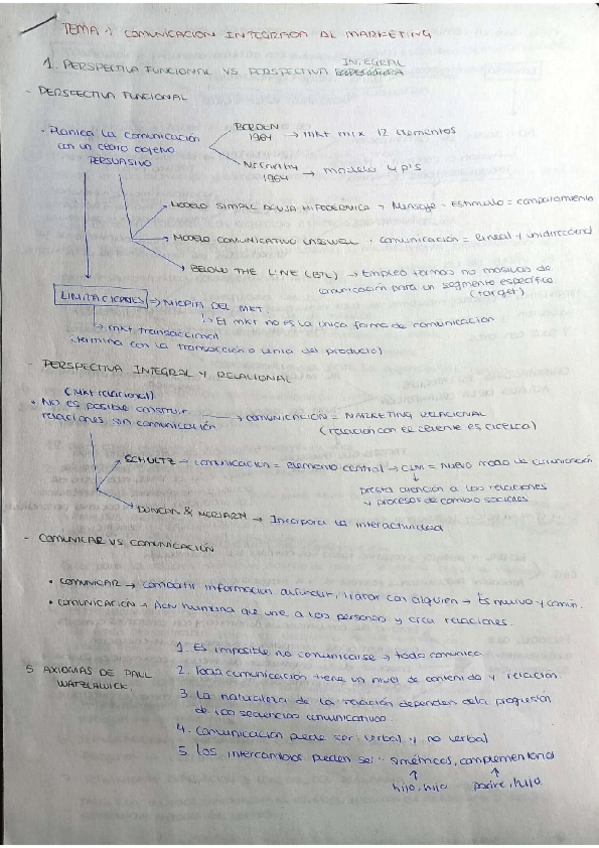 TEMA 1 COMUNICACIÓN INTEGRADA AL MARKETING
1. PERSPECTIVA FUNCIONAL VS PERSPECTIVA INTEGRAL
- PERSPECTIVA FUNCIONAL
• Planica la comunicación con un claro objetivo PERSUASIVO
BORDEN 1964 → mkt mix 12 elementos
McCarthy 1964 → modelo 4 P's
MODELO SIMPLE AGUJA HIPODÉRMICA → Mensaje - Estímulo = comportamiento
MODELO COMUNICATIVO LASWELL - comunicación = lineal y unidireccional
BELOW THE LINE (BTL) → Empleo formas no masivas de
comunicación para un segmento específico
(target)
LIMITACIONES ⇒ MIOPÍA DEL MKT.
↳ El mkt no es la única forma de comunicación
↳ mkt transaccional
(termina con la transacción o venta del producto)
- PERSPECTIVA INTEGRAL Y RELACIONAL
(Mkt relacional)
• NO es posible construir
relaciones sin comunicación
→ COMUNICACIÓN = MARKETING RELACIONAL
(relación con el cliente es cíclica)
SCHULTZ → comunicación = elemento central → CIM = nuevo modo de comunicación
presta atención a las relaciones
→ procesos de cambio sociales
DUNCAN & MORIARTY → Incorpora la interactividad
- COMUNICAR VS COMUNICACIÓN
• COMUNICAR → compartir información, difundir, tratar con alguien → Es mutuo y común.
• COMUNICACIÓN → Acto humano que une a las personas y crea relaciones.
5 AXIOMAS DE PAUL
WATZLAWICK.
1. Es imposible no comunicarse → todo comunica
2. Toda comunicación tiene un nivel de contenido y relación.
3. La naturaleza de la relación dependen de la progresión
de las secuencias comunicativas.
4. Comunicación puede ser: verbal y no verbal
5. Los intercambios pueden ser: simétricos, complementarios
hijo, hijo padre, hijo